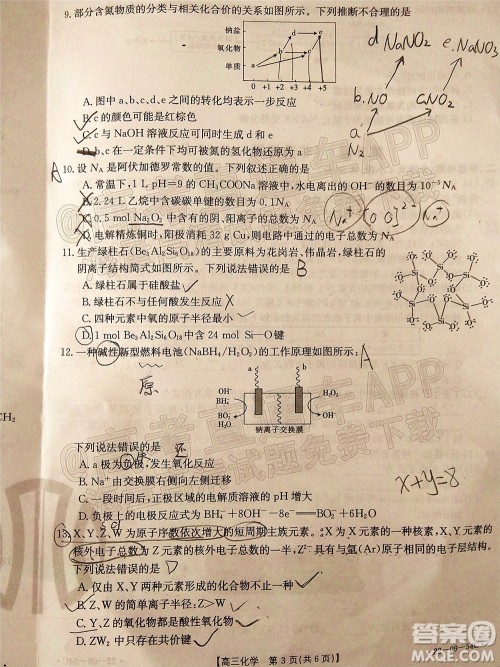 9. 部分含氮物质的分类与相关化合价的关系如图所示。下列推断不合理的是
钠盐
氧化物
单质
0 +1 +2 +3 +4 +5
a b c d e
d NaNO₂ e. NaNO₃
b. NO cNO₂
a.
N₂
A. 图中 a、b、c、d、e 之间的转化均表示一步反应
B. c 的颜色可能是红棕色
C. c 与 NaOH 溶液反应可同时生成 d 和 e
D. b、c 在一定条件下均可被氮的氢化物还原为 a
A 10. 设 Nᴀ 是阿伏加德罗常数的值。下列叙述正确的是
A. 常温下，1 L pH＝9 的 CH₃COONa 溶液中，水电离出的 OH⁻ 的数目为 10⁻⁵Nᴀ
B. 2.24 L 乙烷中含碳碳单键的数目为 0.1Nᴀ
C. 0.5 mol Na₂O₂ 中，阴、阳离子的总数为 Nᴀ
D. 电解精炼铜时，阳极消耗 32 g Cu，则电路中通过的电子总数为 Nᴀ
11. 生产绿柱石(Be₃Al₂Si₆O₁₈)的主要原料为花岗岩、伟晶岩，绿柱石的
阴离子结构简式如图所示。下列说法错误的是 B
A. 绿柱石属于硅酸盐
B. 绿柱石不与任何酸发生反应
C. 四种元素中氧的原子半径最小
D. 1 mol Be₃Al₂Si₆O₁₈ 中含 24 mol Si—O 键
12. 一种碱性新型燃料电池(NaBH₄/H₂O₂)的工作原理如图所示： A
原
a b
OH⁻
BH₄⁻
H₂O
OH⁻
H₂O₂
钠离子交换膜
下列说法错误的是
还
A. a 极为负极，发生氧化反应
B. Na⁺由交换膜右侧向左侧迁移
C. 工作一段时间后，正极区域的电解质溶液的 pH 增大
x+y=8
13. X、Y、Z、W 为原子序数依次增大的短周期主族元素。
核外电子总数为 Z 元素的核外电子总数的一半，且五者均具有与氩(Ar)原子相同的电子层结构。
下列说法错误的是 D
A. 仅由 X、Y 两种元素组成的化合物不止一种
B. Z、W 的简单离子半径：Z>W
C. X 的氧化物、氯化物、氢化物均为共价化合物
【高三化学 第 3 页(共 6 页)】
22-09-54C
答案圈
MXQE.COM